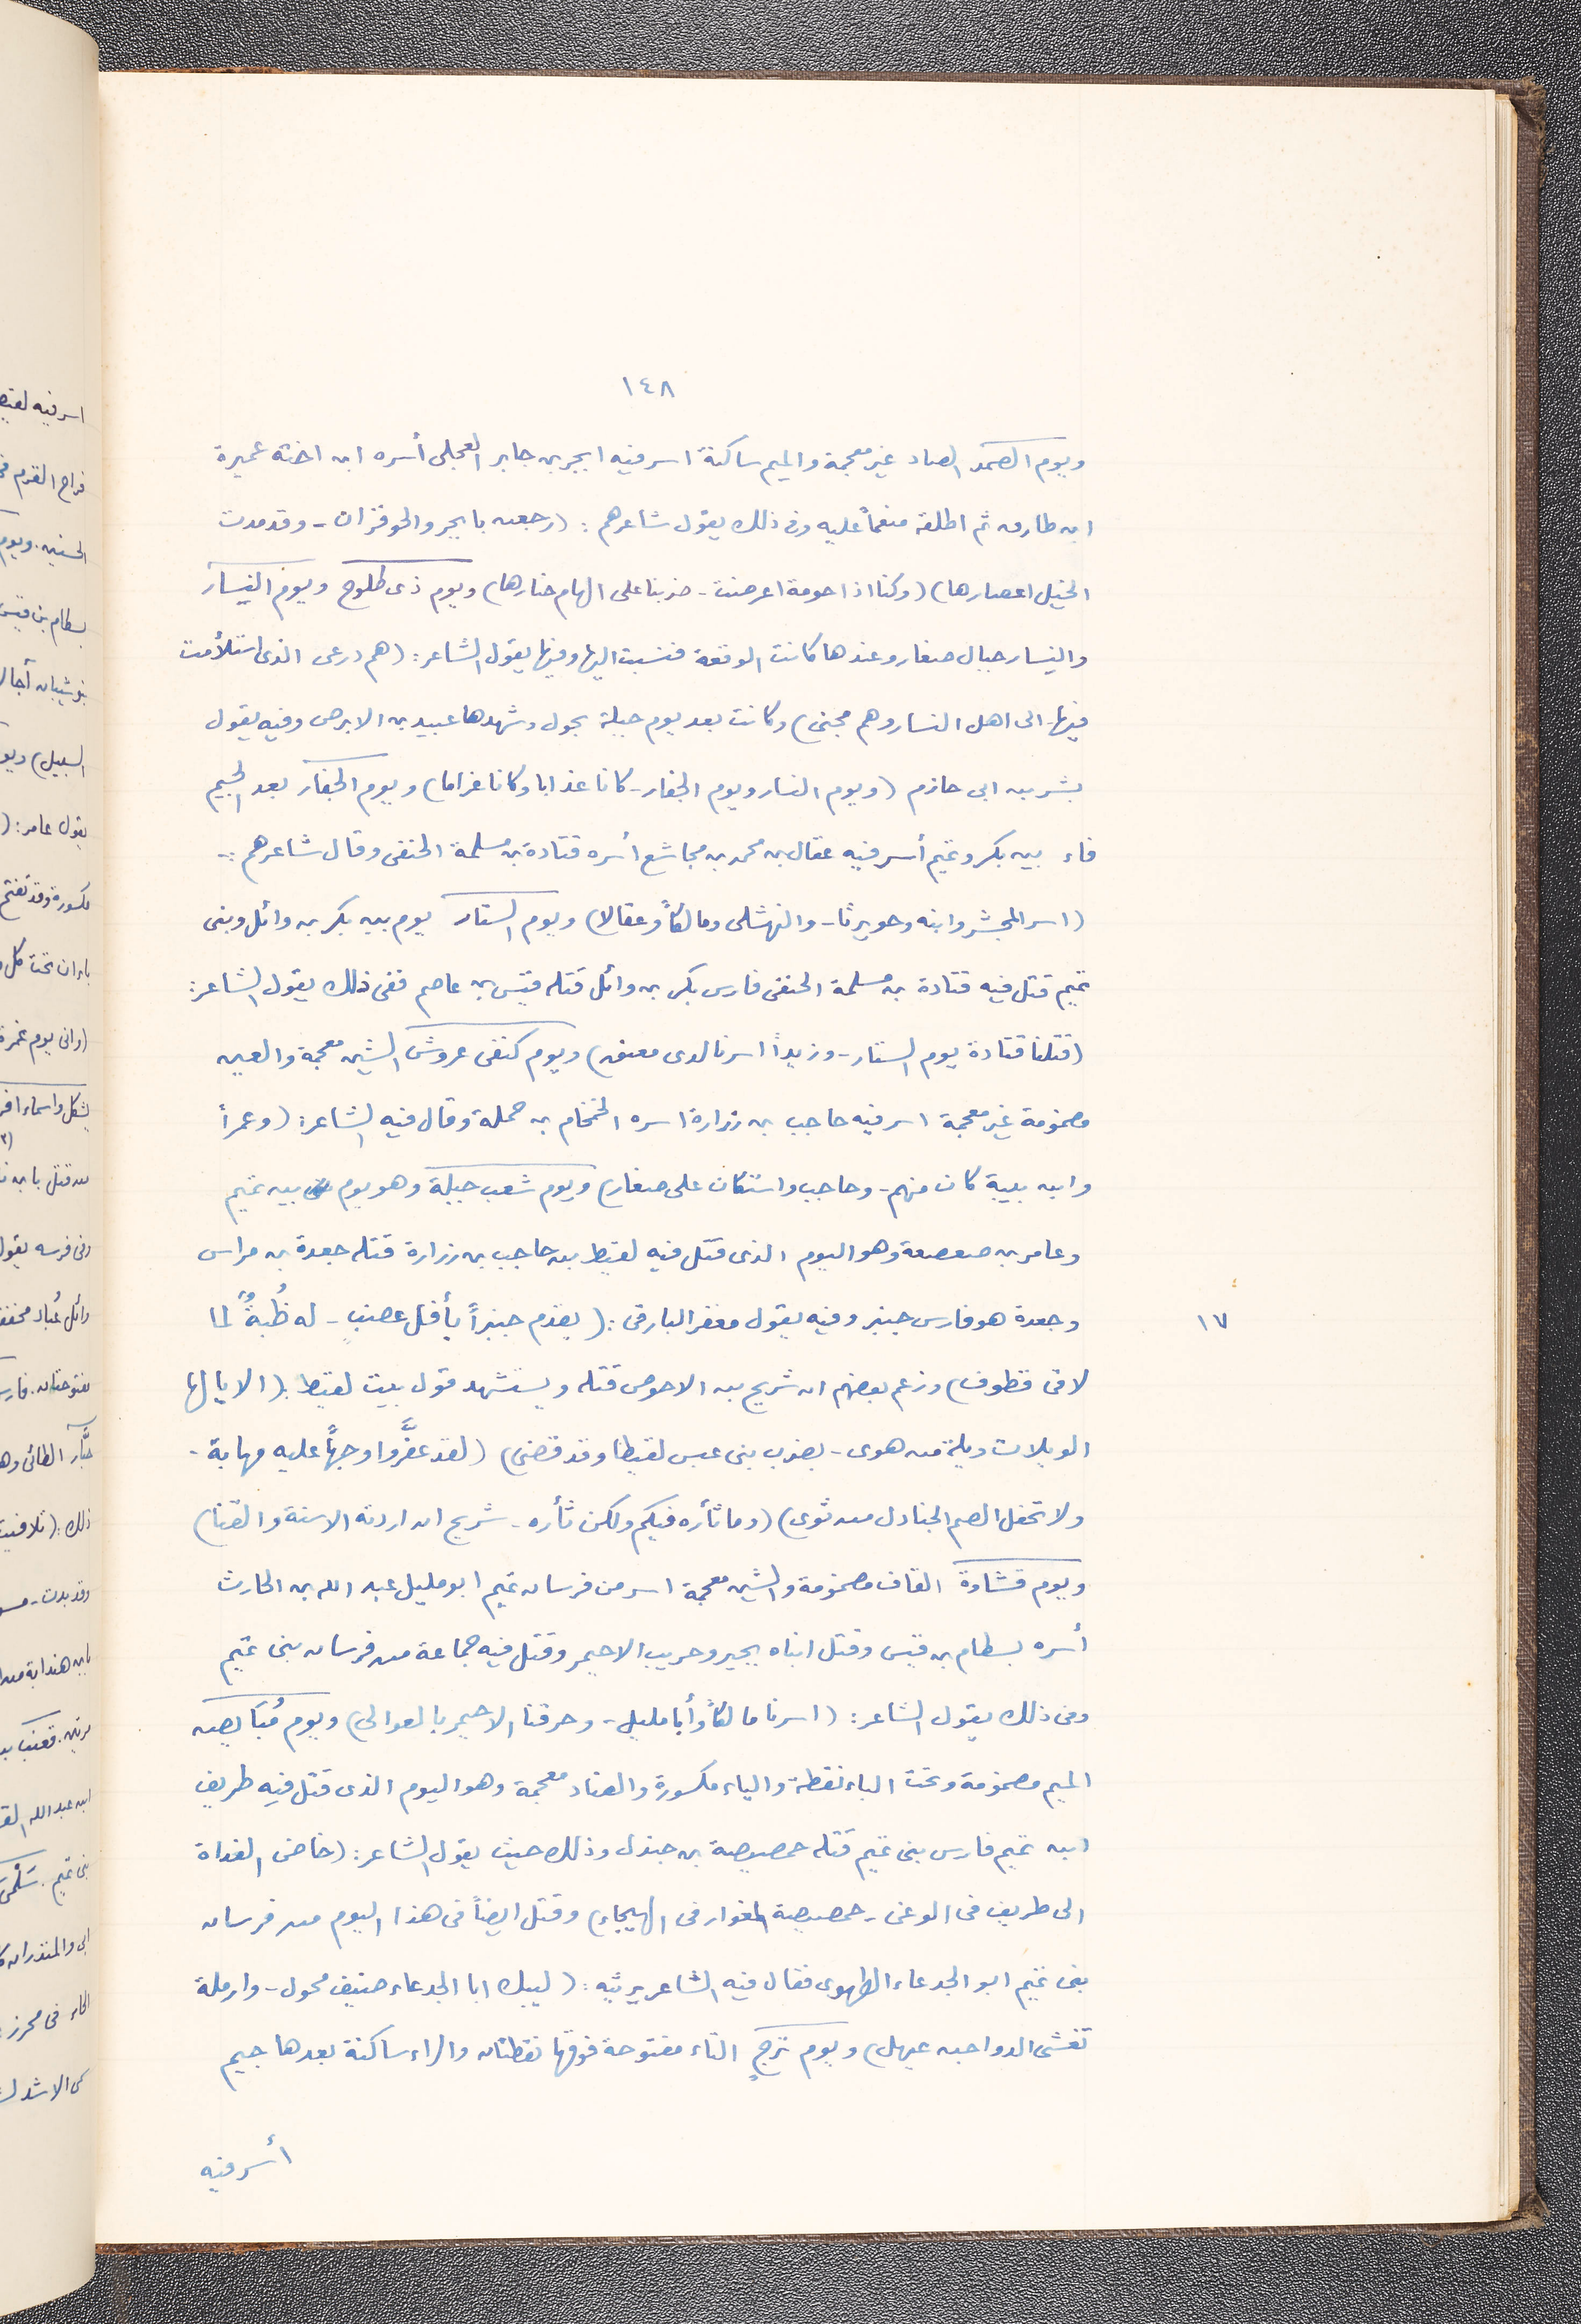 ١٤٨
ويوم الصمد الصاد غير معجمة والميم ساكنة اسر فيه ابجر بن جابر العجلى أسره ابن اخته عميرة
ابن طارق ثم اطلقه منعماً عليه وفى ذلك يقول شاعرهم : (رجعن بابجر والحوفزان - وقد مدت
الخيل اعصارها) (وكنا اذا حومة اعرضت - ضربنا على الهام جبارها) ويوم ذى طلوح ويوم النِسار
والنِسار جبال صغار وعندها كانت الوقعة فنسبت اليها وفيها يقول الشاعر : (هم درعى الذى استلأمت
فيها - الى اهل النسار وهم مجنى) وكانت بعد يوم جبلة بحول وشهدها عبيد بن الابرص وفيه يقول
بشر بن ابى حازم (ويوم النسار ويوم الجفار - كانا عذابا وكانا غراما) ويوم الجِفار بعد الجيم
فاء بين بكر وتميم أسر فيه عقال بن محمد بن مجاشع أسره قتادة بن مسلمة الحنفى وقال شاعرهم :-
(اسر المجشر وابنه وحويرثا - والنهشلى ومالكاً وعقالا) ويوم الستار يوم بين بكر بن وائل وبنى
تميم قتل فيه قتادة بن مسلمة الحنفى فارس بكر بن وائل قتله قيس بن عاصم ففى ذلك يقول الشاعر :
(قتلنا قتادة يوم الستار - وزيداً اسرنا لدى معنق) ويوم كنفى عروش الشين معجمة والعين
مضمومة غير معجمة اسر فيه حاجب بن زرارة اسره الخمخام بن حملة وقال فيه الشاعر : (وعمراً
وابن بيبة كان منهم - وحاجب واستكان على صغار) ويوم شعب جبلة وهو يوم بين تميم
وعامر بن صعصعة وهو اليوم الذى قتل فيه لقيط بن حاجب بن زرارة قتله جعدة بن مراس
وجعدة هو فارس جبنر وفيه يقول معقر البارقى : (يقدم جبنراً بأفل عضبٍ - له ظُبةٌ لما
١٧
لاقى قطوف) وزعم بعضهم ان شريح بن الاحوص قتله ويستشهد قول بيت لقيط : (الا يا لها
الويلات ويلة من هوى - بضرب بنى عبس لقيطا وقد قضى) (لقد عفَّروا وجهاً عليه مهابة -
ولا تحفل الصم الجنادل من ثوى) (وما ثأره فيكم ولكن ثأره - شريح ان اردته الاسنة والقنا)
ويوم قشادة القاف مضمومة والشين معجمة اسر من فرسان تميم ابو مليل عبد الله بن الحارث
أسره بسطام بن قيس وقتل ابناه بجير وحريب الاحيمر وقتل فيه جماعة من فرسان بنى تميم
وفى ذلك يقول الشاعر : (اسرنا مالكاً وأبا مليل - وحرقنا الاحيمر بالعوالى) ويوم مُبَايِض
الميم مضمومة وتحت الباء نقطة والياء مكسورة والضاد معجمة وهو اليوم الذى قتل فيه طريف
ابن تميم فارس بنى تميم قتله حمصيصة بن جندل وذلك حيث يقول الشاعر : (خاض الغداة
الى طريف فى الوغى - حمصيصة المغوار فى الهيجاء) وقتل ايضاً فى هذا اليوم من فرسان
بنى تميم ابو الجدعاء الطهوى فقال فيه الشاعر يرثيه : (ليبك ابا الجدعاء ضيف محول - وارملة
تغشى الدواحبه عيهل) ويوم ترجٍ التاء مفتوحة فوقها نقطتان والراء ساكنة بعدها جيم
أسر فيه